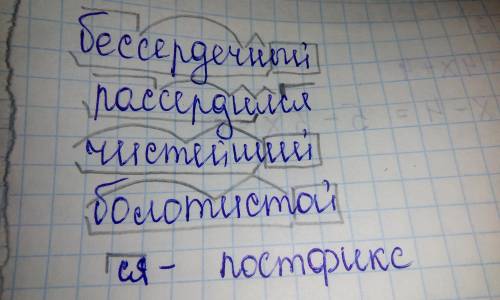 бессердечный
рассердился
чистейший
болотистой
ся - постфикс